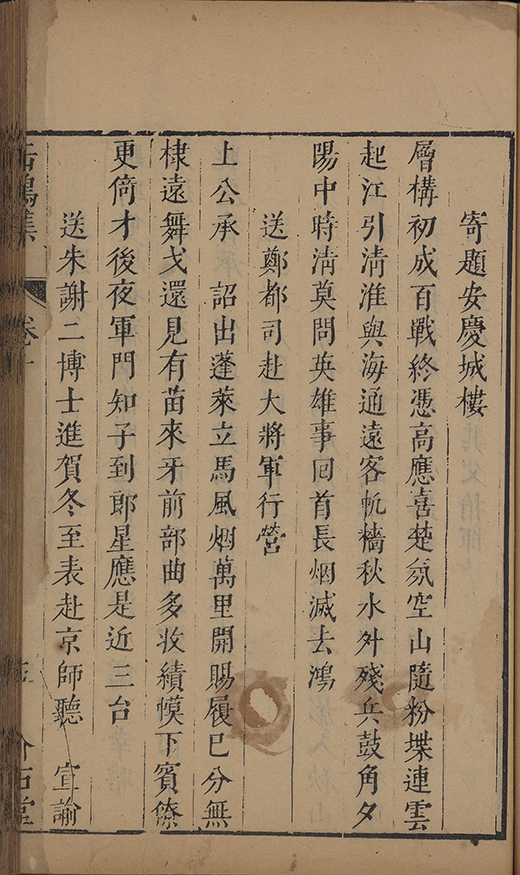 寄題安慶城樓
層構初成百戰終憑高應喜楚氛空山隨粉堞連雲
起江引清淮與海通遠客帆檣秋水外殘兵鼓角夕
陽中時淸莫問英雄事回首長烟滅去鴻
送鄭都司赴大將軍行營
上公承　詔出蓬萊立馬風烟萬里開賜履已分無
棣遠舞戈還見有苗來牙前部曲多收績幙下賓僚
更倚才後夜軍門知子到郎星應是近三台
送朱謝二博士進賀冬至表赴京師聽　宣諭
缶鳴集
卷十
介石堂